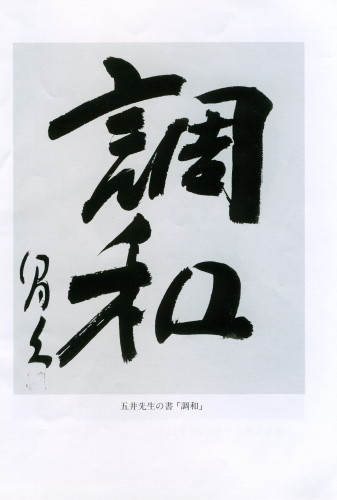 調和
昌久
五井先生の書「調和」